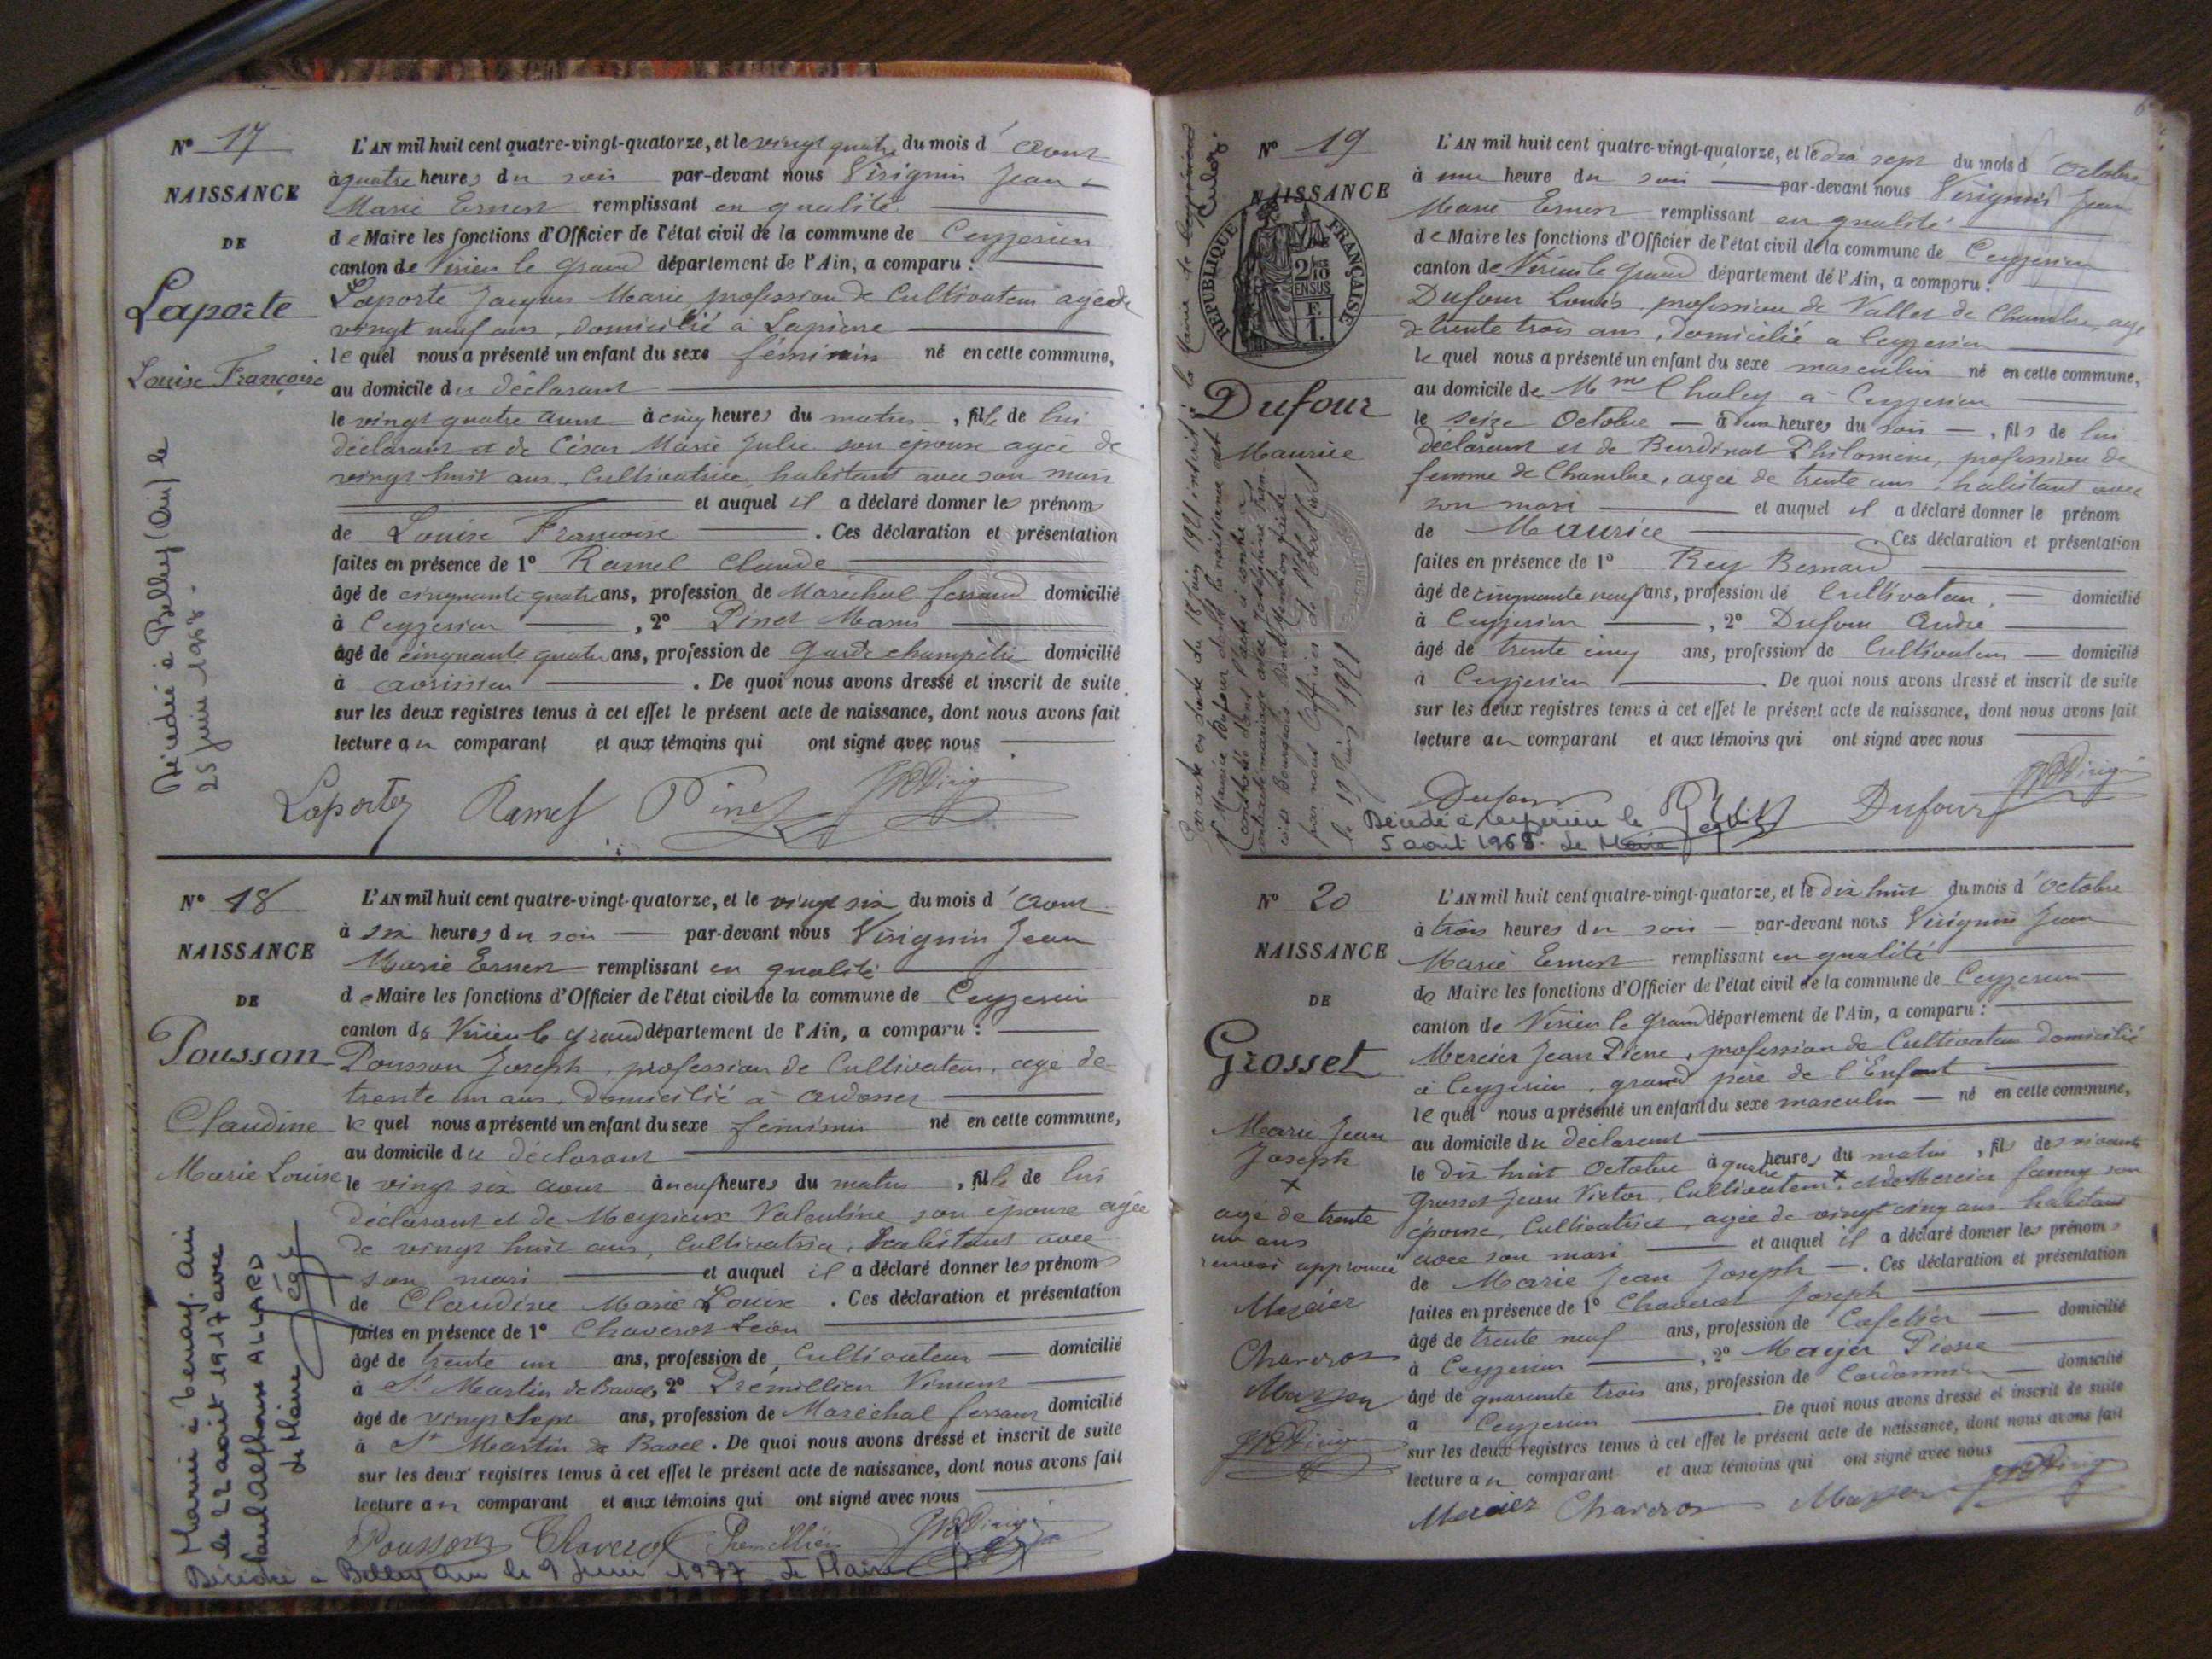 Nº 17
NAISSANCE
DE
Laporte
Louise Françoise
Décédée à Belley (Ain) le
25 juin 1968.
L'AN mil huit cent quatre-vingt-quatorze, et le vingt quatre du mois d'Aout
à quatre heures du soir par-devant nous Virignin Jean
Marie Ernest remplissant en qualité
de Maire les fonctions d'Officier de l'état civil de la commune de Ceyzerieu
canton de Virieu le Grand département de l'Ain, a comparu :
Laporte Jacques Marie, profession de Cultivateur agé de
vingt neuf ans, domicilié à
le quel nous a présenté un enfant du sexe féminin né en cette commune,
au domicile du déclarant
le vingt quatre Aout à cinq heures du matin, fille de lui
déclarant et de César Marie Julie son épouse agée de
vingt huit ans, Cultivatrice, habitant avec son mari
et auquel il a déclaré donner les prénoms
de Louise Françoise. Ces déclaration et présentation
faites en présence de 1º Ramel Claude
âgé de cinquante quatre ans, profession de Maréchal ferrand domicilié
à Ceyzerieu, 2º Pinet Marius
âgé de cinquante quatre ans, profession de Garde champêtre domicilié
à avrissieu. De quoi nous avons dressé et inscrit de suite
sur les deux registres tenus à cet effet le présent acte de naissance, dont nous avons fait
lecture au comparant et aux témoins qui ont signé avec nous
Laporte Ramel Pinet
Nº 18
NAISSANCE
DE
Pousson
Claudine
Marie Louise
Mariée à Benay. Ain
le 22 août 1917 avec
Paul Alphonse ALLARD
Le Maire
L'AN mil huit cent quatre-vingt-quatorze, et le vingt six du mois d'Aout
à six heures du soir par-devant nous Virignin Jean
Marie Ernest remplissant en qualité
de Maire les fonctions d'Officier de l'état civil de la commune de Ceyzerieu
canton de Virieu le Grand département de l'Ain, a comparu :
Pousson Joseph, profession de Cultivateur, agé de
trente un ans, domicilié à Ardosset
le quel nous a présenté un enfant du sexe féminin né en cette commune,
au domicile du déclarant
le vingt six aout à neuf heures du matin, fille de lui
déclarant et de Meyrieux Valentine son épouse agée
de vingt huit ans, Cultivatrice, habitant avec
son mari et auquel il a déclaré donner les prénoms
de Claudine Marie Louise. Ces déclaration et présentation
faites en présence de 1º Chaverot Léon
âgé de trente un ans, profession de Cultivateur domicilié
à St Martin de Bavel, 2º Prémillieu Vincent
âgé de vingt sept ans, profession de Maréchal ferrant domicilié
à St Martin de Bavel. De quoi nous avons dressé et inscrit de suite
sur les deux registres tenus à cet effet le présent acte de naissance, dont nous avons fait
lecture au comparant et aux témoins qui ont signé avec nous
Pousson Chaverot Prémillieu
Décédée à Belley Ain le 9 Juin 1977 Le Maire
Nº 19
NAISSANCE
RÉPUBLIQUE FRANÇAISE
2/10 EN SUS
F. 1.
Dufour
Maurice
Par acte en date du 18 Juin 1921 inscrit à la Mairie de
Mr Maurice Dufour dont la naissance est
constatée dans l'acte ci-contre a
contracté mariage avec Joséphine
par nous Officier de l'Etat Civil
le 19 Juin 1921
L'AN mil huit cent quatre-vingt-quatorze, et le dix sept du mois d'Octobre
à une heure du soir par-devant nous Virignin Jean
Marie Ernest remplissant en qualité
de Maire les fonctions d'Officier de l'état civil de la commune de Ceyzerieu
canton de Virieu le Grand département de l'Ain, a comparu :
Dufour Louis, profession de Vallet de Chambre, agé
de trente trois ans, domicilié à Ceyzerieu
le quel nous a présenté un enfant du sexe masculin né en cette commune,
au domicile de Mme Chaley à Ceyzerieu
le seize Octobre à une heures du soir, fils de lui
déclarant et de Burdinat Philomène, profession de
femme de Chambre, agée de trente ans habitant avec
son mari et auquel il a déclaré donner le prénom
de Maurice. Ces déclaration et présentation
faites en présence de 1º Rey Bernard
âgé de cinquante neuf ans, profession de Cultivateur, domicilié
à Ceyzerieu, 2º Dufour André
âgé de trente cinq ans, profession de Cultivateur domicilié
à Ceyzerieu. De quoi nous avons dressé et inscrit de suite
sur les deux registres tenus à cet effet le présent acte de naissance, dont nous avons fait
lecture au comparant et aux témoins qui ont signé avec nous
Dufour Dufour
Décédé à Ceyzerieu le
5 août 1968. Le Maire
Nº 20
NAISSANCE
DE
Grosset
Marie Jean
Joseph
x
agé de trente
un ans
renvoi approuvé
Mercier
Chaverot
L'AN mil huit cent quatre-vingt-quatorze, et le dix huit du mois d'Octobre
à trois heures du soir par-devant nous Virignin Jean
Marie Ernest remplissant en qualité
de Maire les fonctions d'Officier de l'état civil de la commune de Ceyzerieu
canton de Virieu le Grand département de l'Ain, a comparu :
Mercier Jean Pierre, profession de Cultivateur domicilié
à Ceyzerieu, grand père de l'Enfant
le quel nous a présenté un enfant du sexe masculin né en cette commune,
au domicile du déclarant
le dix huit Octobre à quatre heures du matin, fils de
Grosset Jean Victor, Cultivateur x et de Mercier fanny son
épouse, Cultivatrice, agée de vingt cinq ans habitant
avec son mari et auquel il a déclaré donner les prénoms
de Marie Jean Joseph. Ces déclaration et présentation
faites en présence de 1º Chaverot Joseph
âgé de trente neuf ans, profession de Cafetier domicilié
à Ceyzerieu, 2º Pierre
âgé de quarante trois ans, profession de Cordonnier domicilié
à Ceyzerieu. De quoi nous avons dressé et inscrit de suite
sur les deux registres tenus à cet effet le présent acte de naissance, dont nous avons fait
lecture au comparant et aux témoins qui ont signé avec nous
Mercier Chaverot